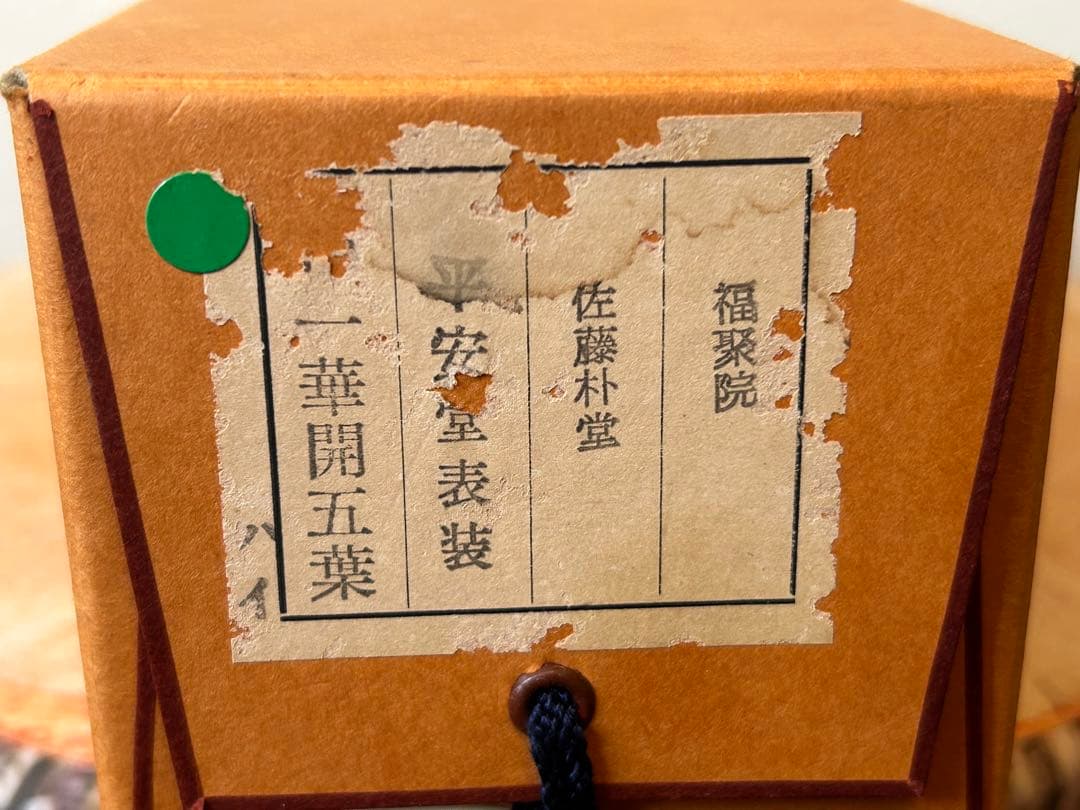 福聚院
佐藤朴堂
平安堂表装
一華開五葉
ハイ